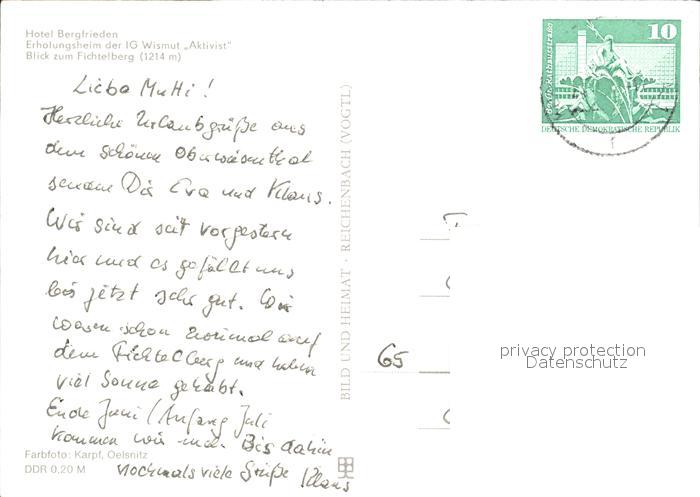 Hotel Bergfrieden
Erholungsheim der IG Wismut „Aktivist"
Blick zum Fichtelberg (1214 m)
Liebe Mutti!
Herzliche Urlaubsgrüße aus
dem schönen Oberwiesenthal
senden Dir Eva und Klaus.
Wir sind seit vorgestern
hier und es gefällt uns
bis jetzt sehr gut. Wir
waren schon zweimal auf
dem Fichtelberg und haben
viel Sonne gehabt.
Ende Juni / Anfang Juli
kommen wir mal. Bis dahin
nochmals viele Grüße Klaus
Farbfoto: Karpf, Oelsnitz
DDR 0,20 M
BILD UND HEIMAT · REICHENBACH (VOGTL)
10
DEUTSCHE DEMOKRATISCHE REPUBLIK
65
privacy protection
Datenschutz